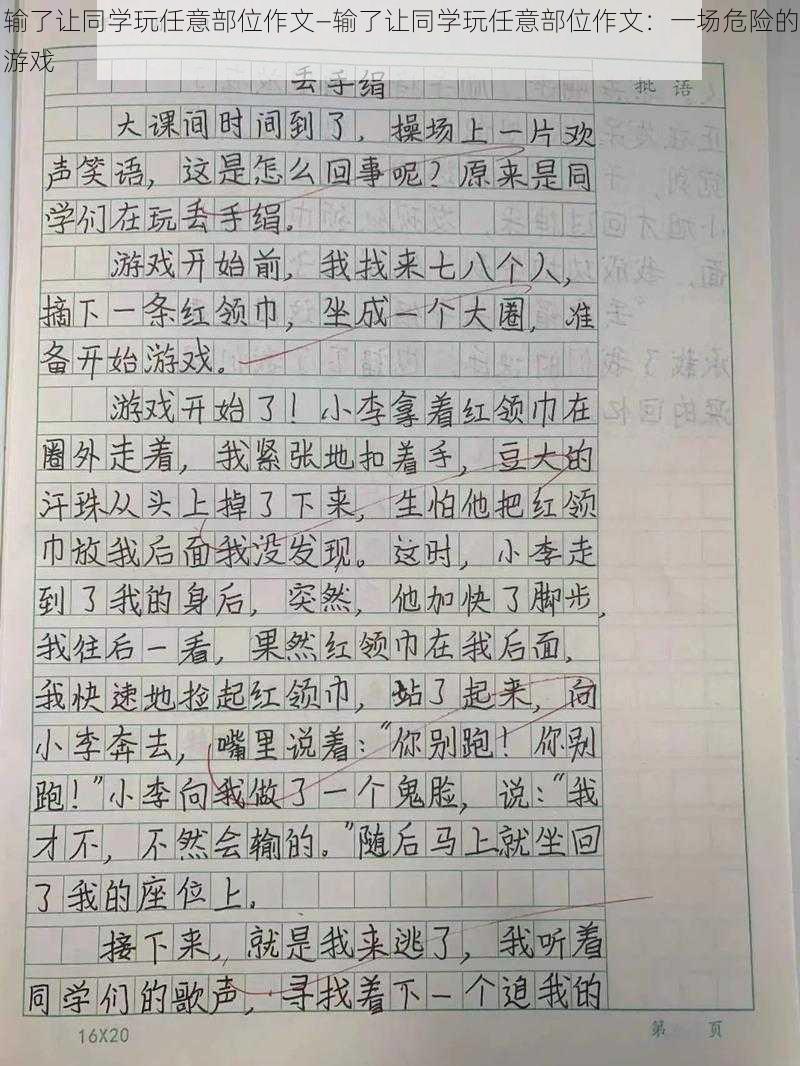 输了让同学玩任意部位作文—输了让同学玩任意部位作文：一场危险的
游戏
丢手绢
批语
大课间时间到了，操场上一片欢
声笑语，这是怎么回事呢？原来是同
学们在玩丢手绢。
游戏开始前，我找来七八个人，
摘下一条红领巾，坐成一个大圈，准
备开始游戏。
游戏开始了！小李拿着红领巾在
圈外走着，我紧张地扣着手，豆大的
汗珠从头上掉了下来，生怕他把红领
巾放我后面我没发现。这时，小李走
到了我的身后，突然，他加快了脚步，
我往后一看，果然红领巾在我后面，
我快速地捡起红领巾，站了起来，向
小李奔去，嘴里说着：“你别跑！你别
跑！”小李向我做了一个鬼脸，说：“我
才不，不然会输的。”随后马上就坐回
了我的座位上。
接下来，就是我来逃了，我听着
同学们的歌声，寻找着下一个追我的
16X20
第 页